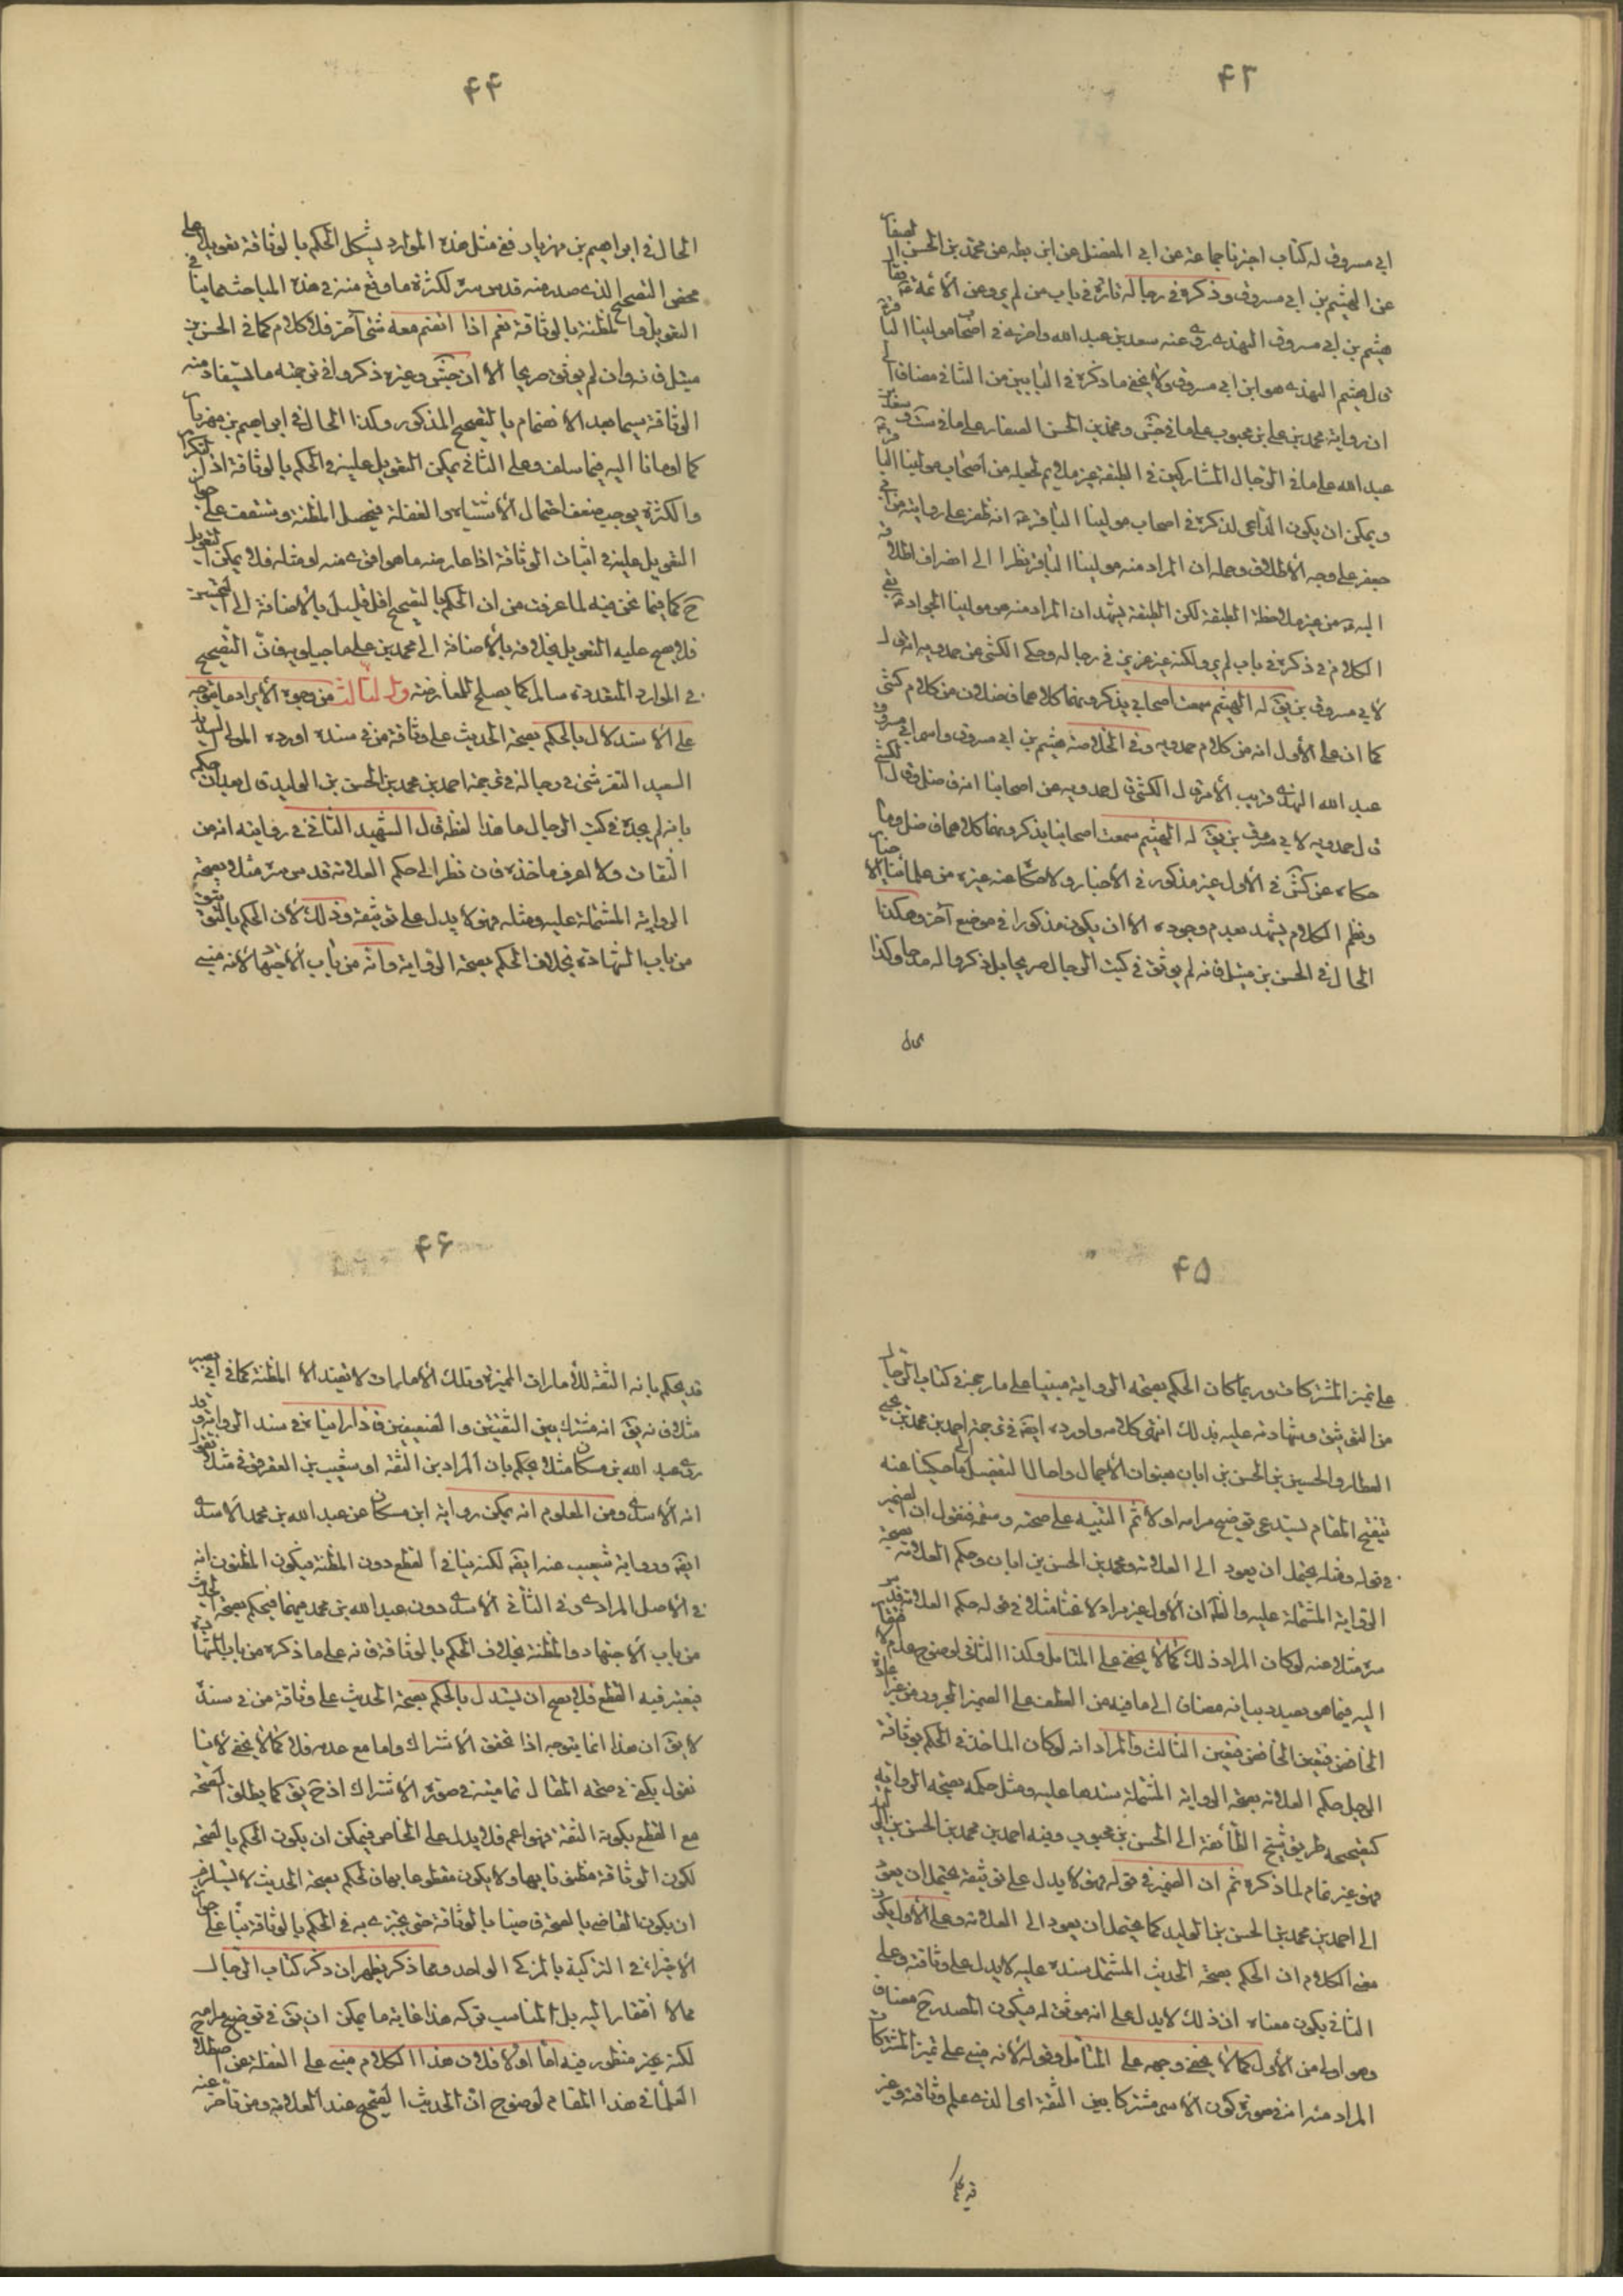 ۴۳
ابي مسروق له كتاب اخبرنا جماعة عن ابي المفضل عن ابن بطه عن محمد بن الحسن الصفار
عن الهيثم بن ابي مسروق وذكره في رجاله تارة في باب من لم يرو عن الأئمة
هيثم بن ابي مسروق النهدي روى عنه سعد بن عبد الله واخرى في اصحاب مولينا الباقر
الهيثم النهدي هو ابن ابي مسروق ولا يخفى ما ذكره في البابين من التنافي مضافا الى
ان رواية محمد بن علي بن محبوب على ما في جش ومحمد بن الحسن الصفار على ما في ست وسعد بن
عبد الله على ما في الرجال المشاركين في الطبقة غير ملايم لجعله من اصحاب مولينا الباقر
ويمكن ان يكون الداعي لذكره في اصحاب مولينا الباقر انه ظفر على روايته عن ابي
جعفر على وجه الأطلاق وحمله ان المراد منه مولينا الباقر نظرا الى انصراف اطلاقه
اليه من غير ملاحظة الطبقة لكن الطبقة يشهد ان المراد منه هو مولينا الجواد بقي
الكلام في ذكره في باب لم يرو ولكنه غير عزيز في رجاله وحكى الكشي عن حمدويه انه قال
لأبي مسروق بن يق له الهيثم سمعت اصحابي يذكرونهما كلاهما فاضلان من كلام كشي
كما ان على الأول انه من كلام حمدويه وفي الخلاصة هيثم بن ابي مسروق واسم ابي مسروق
عبد الله النهدي قريب الأمر قال الكشي قال حمدويه عن اصحابنا انه فاضل وقال الكشي
قال حمدويه لأبي مسروق بن يق له الهيثم سمعت اصحابنا يذكرونهما كلاهما فاضلان وما
حكاه عن كش في الأول غير مذكور في الأخبار ولا حكاه عنه غيره من علمائنا
ونظم الكلام يشهد بعدم وجوده الا ان يكون مذكورا في موضع آخر وهكذا
الحال في الحسن بن متيل فانه لم يوثق في كتب الرجال صريحا بل ذكروا له مدحا وكذا
الحال
۴۴
الحال في ابراهيم بن مهزيار ففي مثل هذه الموارد يشكل الحكم بالوثاقة تعويلا على
محض التصحيح الذي صدر منه قدس سره لكثرة ما وقع منه في هذه المباحث مما ينافي
التعويل والمظنة بالوثاقة نعم اذا انضم معه شئ آخر فلا كلام كما في الحسن بن
متيل فانه وان لم يوثق صريحا الا ان جش وغيره ذكروا في ترجمته ما يستفاد منه
الوثاقة سيما بعد الانضمام بالتصحيح المذكور وكذا الحال في ابراهيم بن مهزيار
كما اومأنا اليه فيما سلف وعلى الثاني يمكن التعويل عليه في الحكم بالوثاقة اذ التكرار
والكثرة يوجب ضعف احتمال الأشتباه والغفلة فيحصل المظنة
التعويل عليه في اثبات الوثاقة اذا عارضه ما هو اقوى منه او مثله فلا يمكن التعويل
ح كما فيما نحن فيه لما عرفت من ان الحكم بالتصحيح اقل قليل بالأضافة الى
فلا يصح عليه التعويل بخلافه بالأضافة الى محمد بن علي ماجيلويه فان التصحيح
في الموارد المتعددة سالم كما يصلح للمعارضة والثالث من وجوه الأيراد ما يتوجه
على الاستدلال بالحكم بصحة الحديث على وثاقة من في سنده اورده المولى السيد
السعيد التفرشي في رجاله في ترجمة احمد بن محمد بن الحسن بن الوليد قال بعد ان حكم
بانه لم يجده في كتب الرجال ما هذا لفظه قال الشهيد الثاني في درايته انه من
الثقات ولا اعرف ماخذه فان نظر الى حكم العلامة قدس سره مثلا بصحة
الرواية المشتملة عليه ومثله فهو لا يدل على توثيقه وذلك لأن الحكم بالتوثيق
من باب الشهادة بخلاف الحكم بصحة الرواية فانه من باب الأجتهاد لأنه مبني
۴۵
على تميز المشتركات وربما كان الحكم بصحة الرواية مبنيا على ما رجح في كتاب الرجال
من التوثيق وشهادته عليه بذلك انتهى كلامه واورده ايضا في ترجمة احمد بن محمد بن يحيى
العطار والحسين بن الحسن بن ابان بعنوان الأجمال واحال التفصيل الى ما حكينا عنه
تنقيح المقام يستدعي توضيح مرامه اولا ثم التنبيه على صحته وسقمه فنقول ان الضمير
في قوله ومثله يحتمل ان يعود الى العلامة ومحمد بن الحسن بن ابان وحكم العلامة بصحة
الرواية المشتملة عليه والظاهر ان الأول غير مراد لاغناء مثلا في قوله حكم العلامة قدس
سره مثلا عنه لو كان المراد ذلك كما لا يخفى على المتامل وكذا الثاني لوضوح عدم
اليه فيما هو بصدد بيانه مضافا الى ما فيه من العطف على الضمير المجرور من غير اعادة
الخافض فتعين الثالث والمراد انه لو كان الماخذ في الحكم بوثاقة
الرجل حكم العلامة بصحة الرواية المشتملة سندها عليه ومثل حكمه بصحة الرواية
كتصحيحه طريق شيخ الطائفة الى الحسن بن محبوب وفيه احمد بن محمد بن الحسن بن الوليد
فهو غير تمام لما ذكره ثم ان الضمير في قوله فهو لا يدل على توثيقه يحتمل ان يعود
الى احمد بن محمد بن الحسن بن الوليد كما يحتمل ان يعود الى العلامة وعلى الأول يكون
معنى الكلام ان الحكم بصحة الحديث المشتمل سنده عليه لا يدل على وثاقته وعلى
الثاني يكون معناه ان ذلك لا يدل على انه موثق له فيكون المصدر ح مضافا
وهو اولى من الأول كما لا يخفى وجهه على المتامل وقوله لأنه مبني على تميز المشتركات
المراد منه انه في صورة كون الأسم مشتركا بين الثقة اي الذي علم وثاقته وغير
۴۶
قد يحكم بانه الثقة للأمارات المميزة وتلك الأمارات لا تفيد الا المظنة كما في ابي بصير
مثلا فانه يق انه مشترك بين الثقتين والضعيفين فاذا راينا في سند الرواية
روى عبد الله بن مسكان مثلا يحكم بان المراد بن الثقة او شعيب بن العقرقوفي مثلا
انه الأسدي ومن المعلوم انه يمكن رواية ابن مسكان عن عبد الله بن محمد الاسدي
ايضا ورواية شعيب عنه ايضا لكنه ينافي القطع دون المظنة فيكون المظنون انه
في الأصل المرادي وفي الثاني الأسدي دون عبد الله بن محمد فيهما فيحكم بصحة الحديث
من باب الأجتهاد والمظنة بخلاف الحكم بالوثاقة فانه على ما ذكره من باب الشهادة
فيعتبر فيه القطع فلا يصح ان يستدل بالحكم بصحة الحديث على وثاقة من في سنده
لا يق ان هذا انما يتوجه اذا تحقق الأشتراك واما مع عدمه فلا كما لا يخفى لأنا
نقول يكفي في صحة المقال تماميته في صورة الأشتراك اذ ح يق كما يطلق الصحة
مع القطع بكونه الثقة فهو اعم فلا يدل على الخاص فيمكن ان يكون الحكم بالصحة
لكون الوثاقة مظنونا بها ولا يكون مقطوعا بها فالحكم بصحة الحديث لا يستلزم
ان يكون القاضي بالصحة قاضيا بالوثاقة حتى يجتزي به في الحكم بالوثاقة بناء على جواز
الأجتزاء في التزكية بالمزكى الواحد ومما ذكر يظهر ان ذكر كتاب الرجال
مما لا افتقار اليه بل المناسب تركه هذا غاية ما يمكن ان يق في توضيح مرامه
لكنه غير منظور فيه اما اولا فلان هذا الكلام مبني على الغفلة عن اصطلاح
العلماء في هذا المقام لوضوح ان الحديث الصحيح عند العلامة ومن تاخر عنه